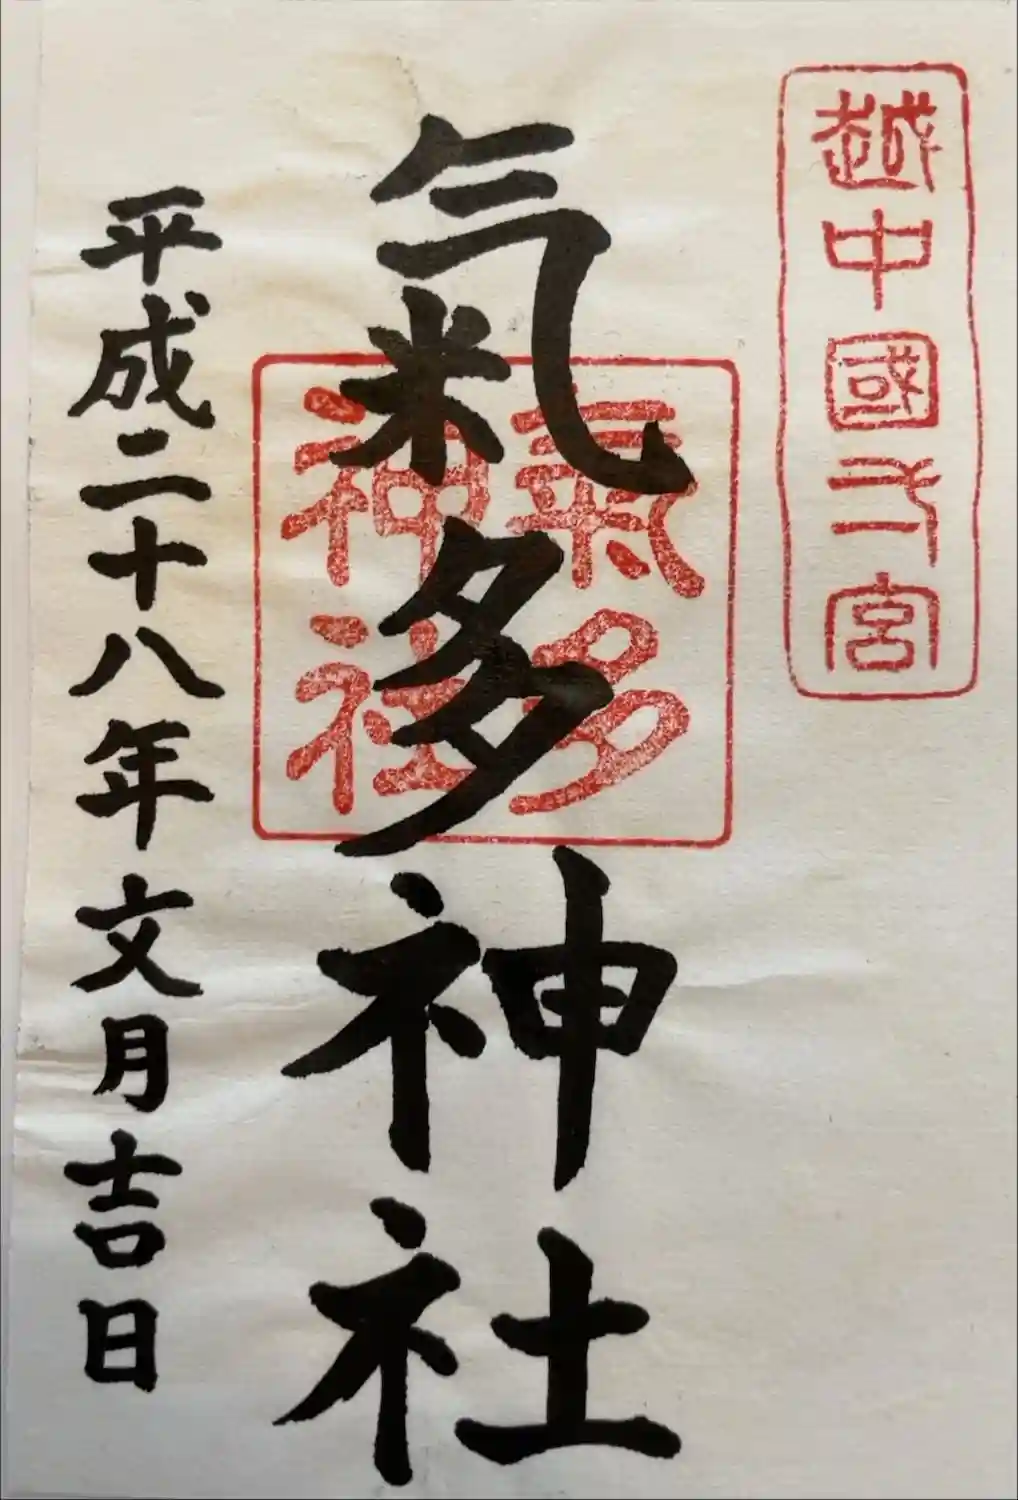 越中國一宮
氣多神社
氣多
神社
平成二十八年文月吉日